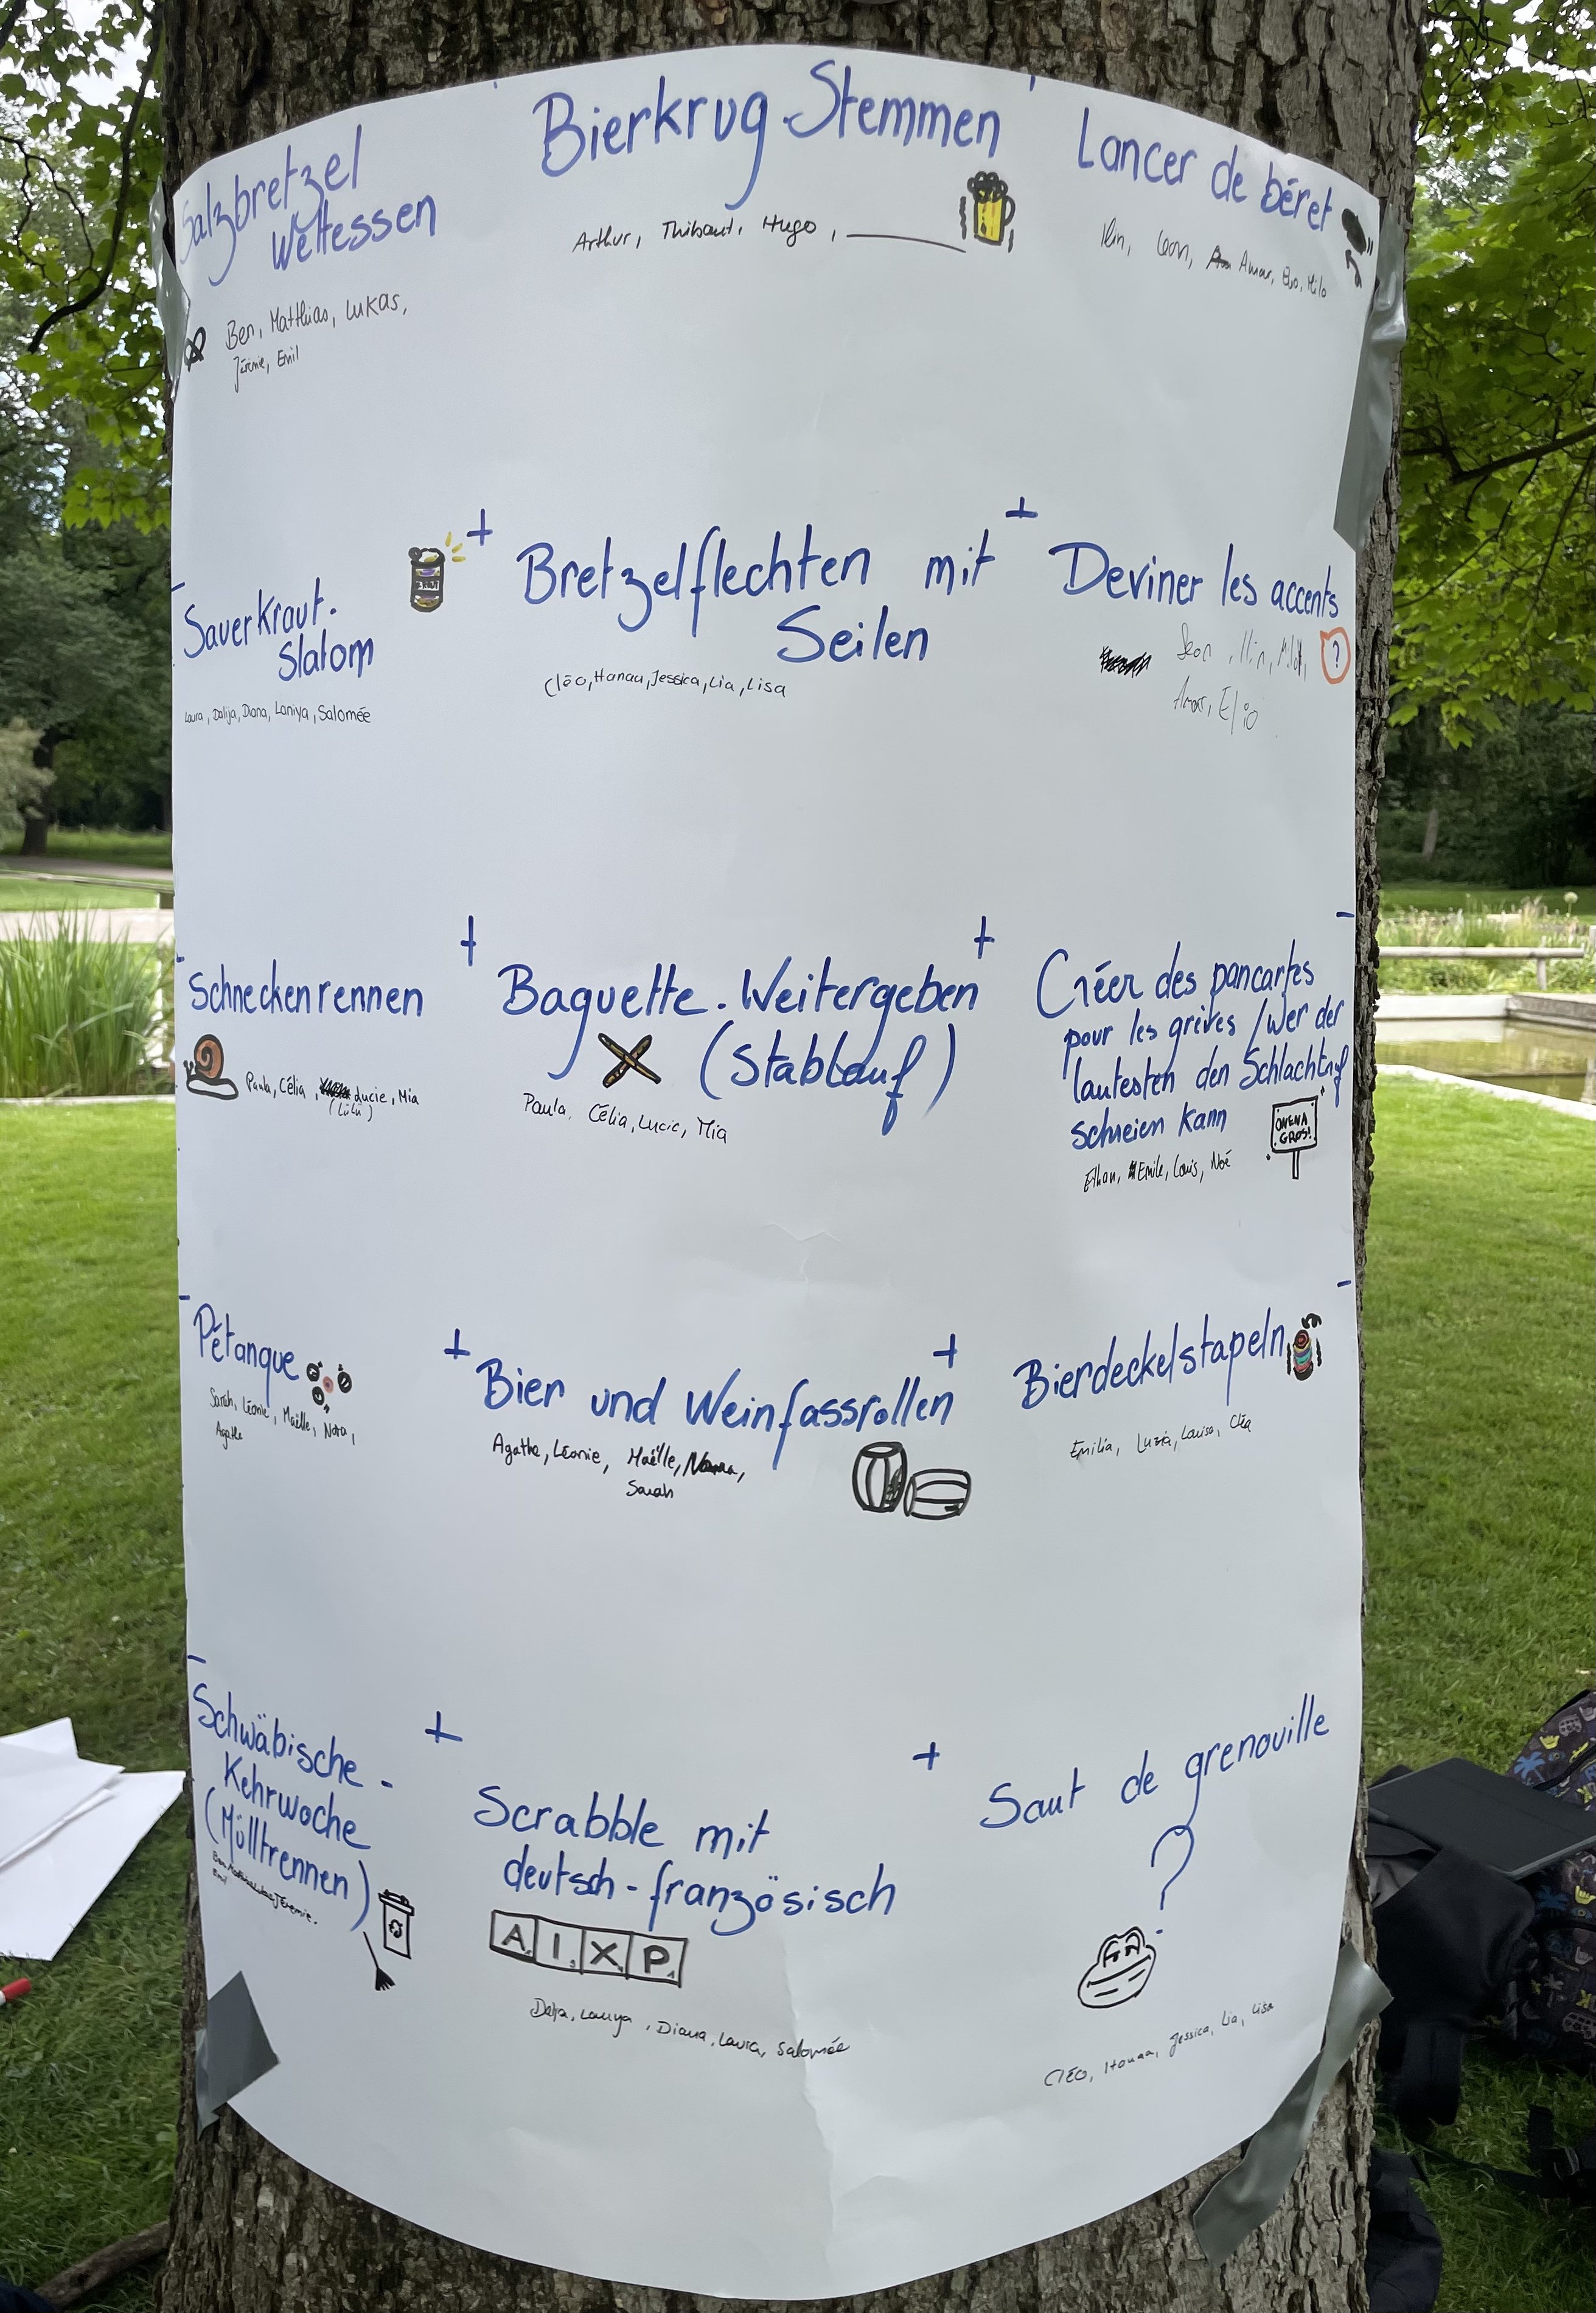 Salzbretzel
Wettessen
Ben, Matthias, Lukas,
Jérémie, Emil
Bierkrug-Stemmen
Arthur, Thibaut, Hugo,
Lancer de béret
Amar, Milo
Sauerkraut-
Slalom
Laura, Dalija, Diana, Laniya, Salomée
Bretzelflechten mit
Seilen
Cléo, Hanau, Jessica, Lia, Lisa
Deviner les accents
?
Elio
Schneckenrennen
Paula, Célia, Lucie, Mia
(Lulu)
Baguette-Weitergeben
(Stablauf)
Paula, Célia, Lucie, Mia
Créer des pancartes
pour les grèves / wer der
lautesten den Schlachtruf
schreien kann
Ethan, Emile, Louis, Noé
ON EN A
GROS!
Pétanque
Sarah, Léonie, Maëlle, Nora,
Agathe
Bier und Weinfassrollen
Agathe, Léonie, Maëlle, Nora,
Sarah
Bierdeckelstapeln
Emilia, Luzia, Louisa, Cléa
Schwäbische-
Kehrwoche
(Mülltrennen)
Jérémie.
Emil
Scrabble mit
deutsch-französisch
A I X P
Dalja, Laniya, Diana, Laura, Salomée
Saut de grenouille
?
Cléo, Jessica, Lia, Lisa